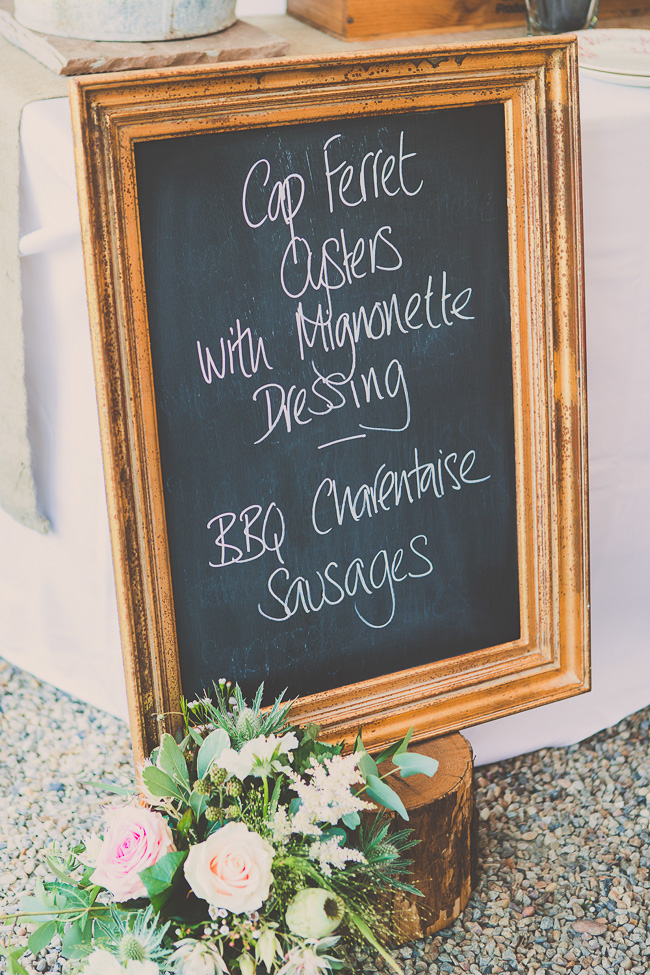 Cap Ferret
Oysters
with Mignonette
Dressing
—
BBQ Charentaise
Sausages